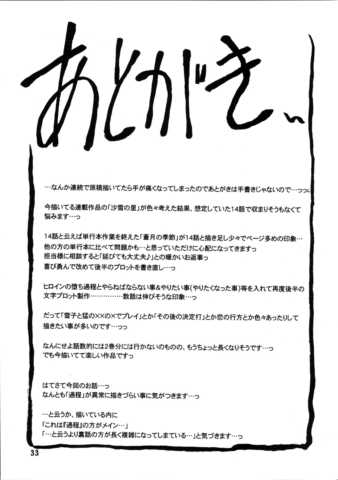 あとがき
…なんか連続で原稿描いてたら手が痛くなってしまったのであとがきは手書きじゃないので…っっ
今描いてる連載作品の「沙雪の里」が色々考えた結果、想定していた14話で収まりそうもなくて
悩みます…っ
14話と云えば単行本作業を終えた「蒼月の季節」が14話と描き足し少々でページ多めの印象…
他の方の単行本に比べて問題かも…と思っていただけに心配になってきますっ
担当様に相談すると「延びても大丈夫♪」との暖かいお返事っ
喜び勇んで改めて後半のプロットを書き直し…っ
ヒロインの堕ち過程とやらねばならない事&やりたい事(やりたくなった事)等を入れて再度後半の
文字プロット製作……………数話は伸びそうな印象…っ
だって「雪子と猛の××の×でプレイ」とか「その後の決定打」とか恋の行方とか色々あったりして
描きたい事が多いのです…っっ
なんにせよ話数的には2巻分には行かないものの、もうちょっと長くなりそうです…っ
でも今描いてて楽しい作品ですっ
はてさて今回のお話…っ
なんとも「過程」が異常に描きづらい事に気がつきます…っ
…と云うか、描いている内に
「これは『過程』の方がメイン…」
「…と云うより裏話の方が長く複雑になってしまている…」と気づきます…っ
33